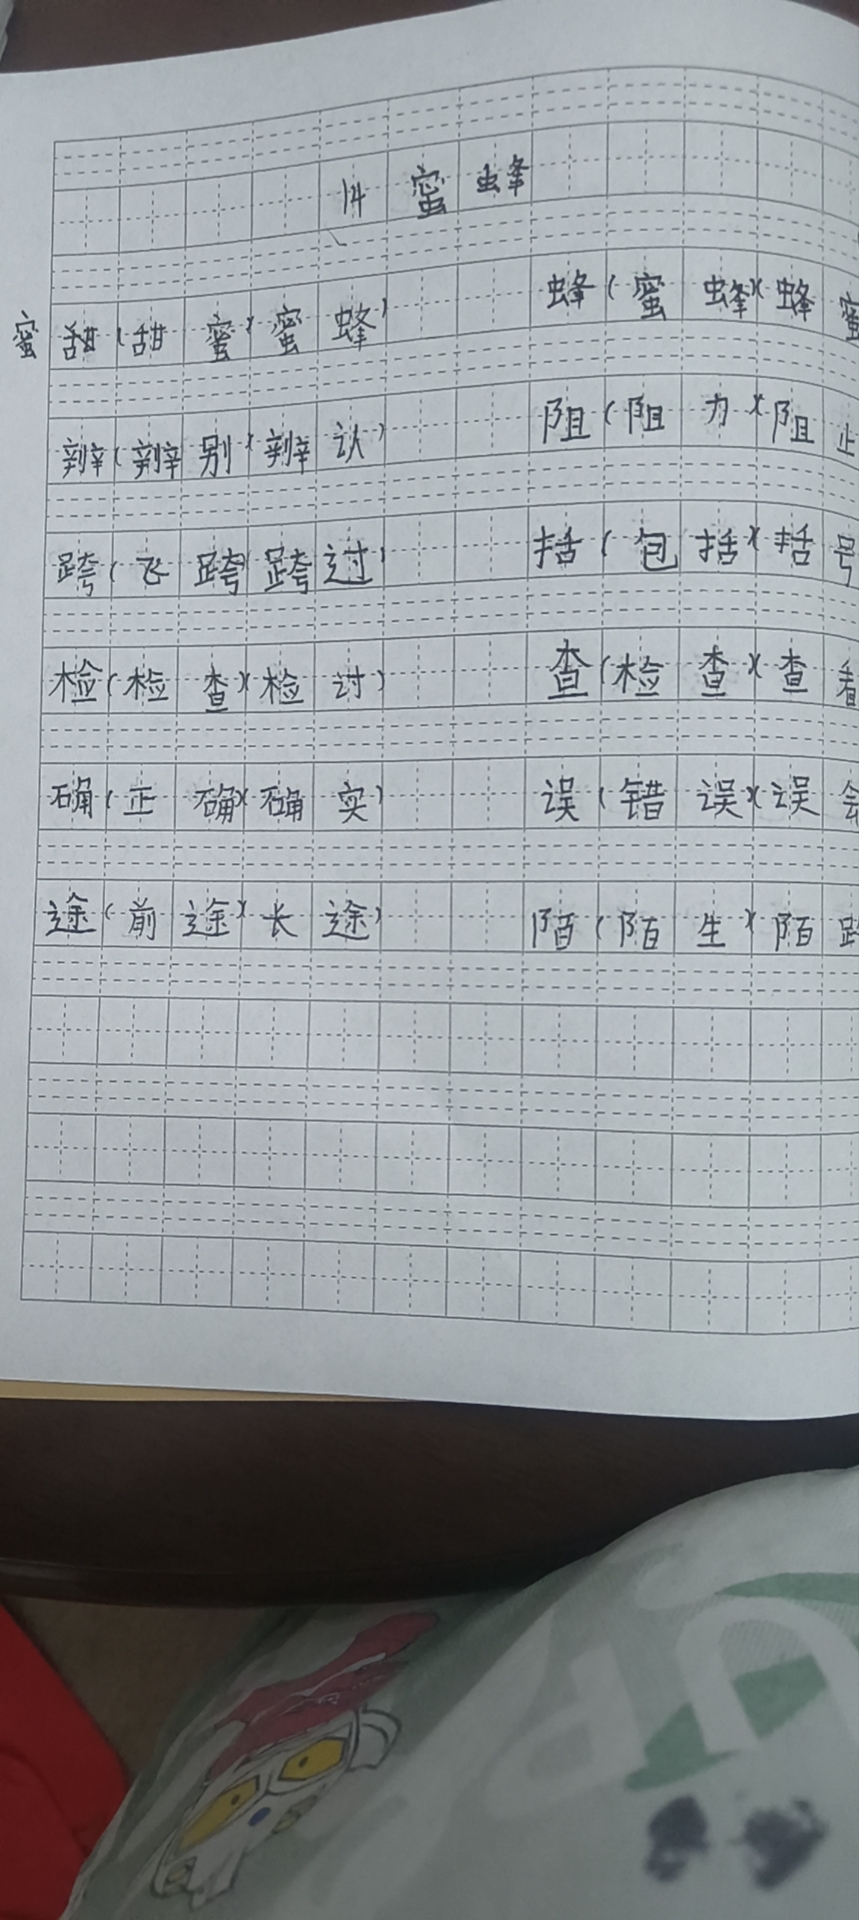 14 蜜蜂
蜜 甜(甜蜜)(蜜蜂) 蜂(蜜蜂)(蜂蜜
辨(辨别)(辨认) 阻(阻力)(阻止
跨(飞跨 跨过) 括(包括)(括号
检(检查)(检讨) 查(检查)(查看
确(正确)(确实) 误(错误)(误会
途(前途)(长途) 陌(陌生)(陌路